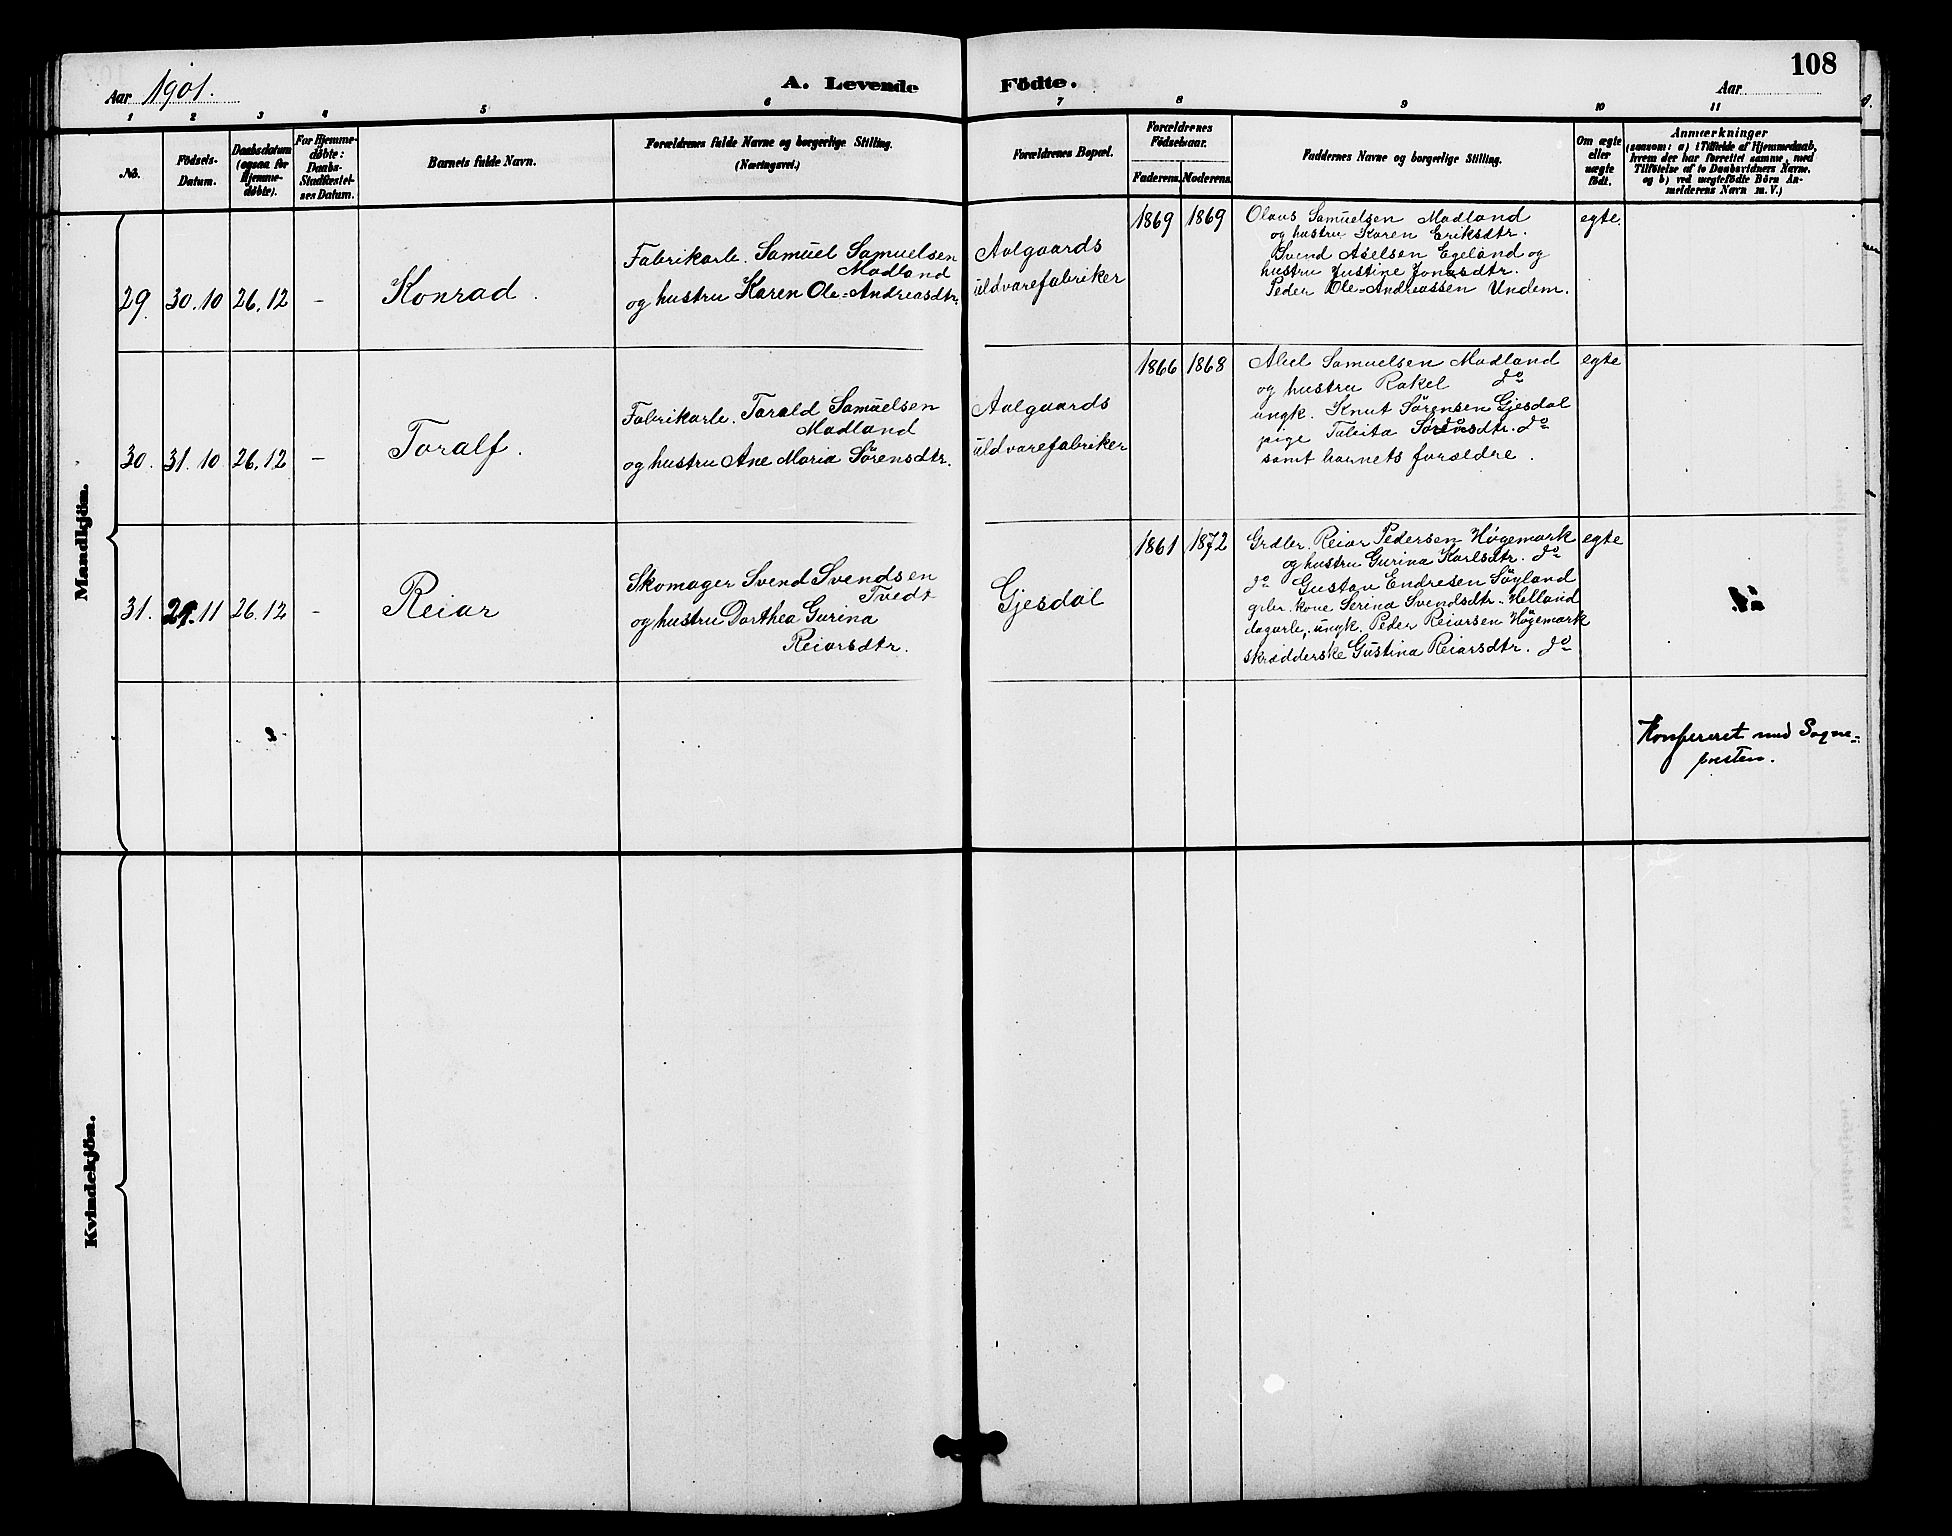 108
Aar 1901. A. Levende Födte. Aar
1 2 3 4 5 6 7 8 9 10 11
No. Födsels-Datum. Daabsdatum (ogsaa for Hjemmedøbte). For Hjemmedøbte: Daabs-Stadfæstelsens Datum. Barnets fulde Navn. Forældrenes fulde Navne og borgerlige Stilling. (Næringsvei.) Forældrenes Bopæl. Forældrenes Födselsaar. Faderens. Moderens. Faddernes Navne og borgerlige Stilling. Om ægte eller uægte födt. Anmærkninger (saasom: a) i Tilfælde af Hjemmedaab, hvem der har forrettet samme, med Tilföielse af to Daabsvidners Navne, og b) ved uægtefödte Börn Anmelderens Navn m. V.)
Mandkjön.
29. 30.10 26.12 – Konrad.
Fabrikarb. Samuel Samuelsen
Madland
og hustru Karen Ole-Andreasdtr.
Aalgaards
uldvarefabriker
1869 1869
Olaus Samuelsen Madland
og hustru Karen Eriksdtr.
Svend Axelsen Egeland og
hustru Justine Jonasdtr.
Peder Ole-Andreassen Undem.
egte
30. 31.10 26.12 – Toralf.
Fabrikarb. Torald Samuelsen
Madland
og hustru Ane Maria Sørensdtr.
Aalgaards
uldvarefabriker
1866 1868
Abel Samuelsen Madland
og hustru Rakel do
ungk. Knut Sørensen Gjesdal
pige Tabita Sørensdtr. do
samt barnets forældre.
egte
31. 11 26.12 – Reiar
Skomager Svend Svendsen
Tvedt
og hustru Dorthea Gurina
Reiarsdtr.
Gjesdal
1861 1872
Grdbr. Reiar Pedersen Høgemark
og hustru Gurina Karlsdtr. do
do Gustav Endresen Søyland
grbr. kone Serina Svendsdtr. Helland
dagarb., ungk. Peder Reiarsen Høgemark
skrædderske Gustina Reiarsdtr. do
egte
Konfereret med Sogne-
presten.
Kvindekjön.